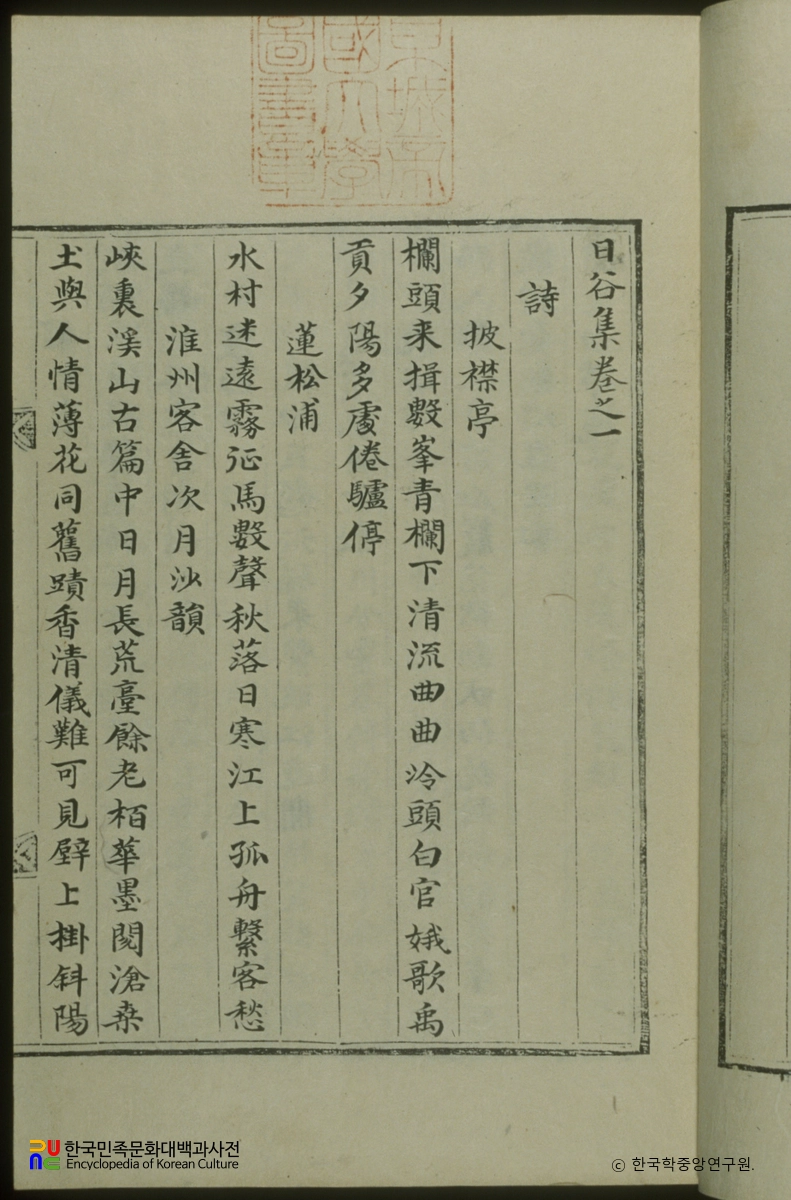 日谷集卷之一
詩
披襟亭
欄頭来揖數峯青欄下清流曲曲泠頭白官娥歌禹
貢夕陽多處倦驢停
蓮松浦
水村迷遠霧征馬數聲秋落日寒江上孤舟繫客愁
淮州客舍次月沙韻
峽裏溪山古篇中日月長荒臺餘老栢華墨閱滄桒
圡與人情薄花同舊蹟香清儀難可見壁上掛斜陽
京城帝
國大學
圖書章
한국민족문화대백과사전
Encyclopedia of Korean Culture
© 한국학중앙연구원.